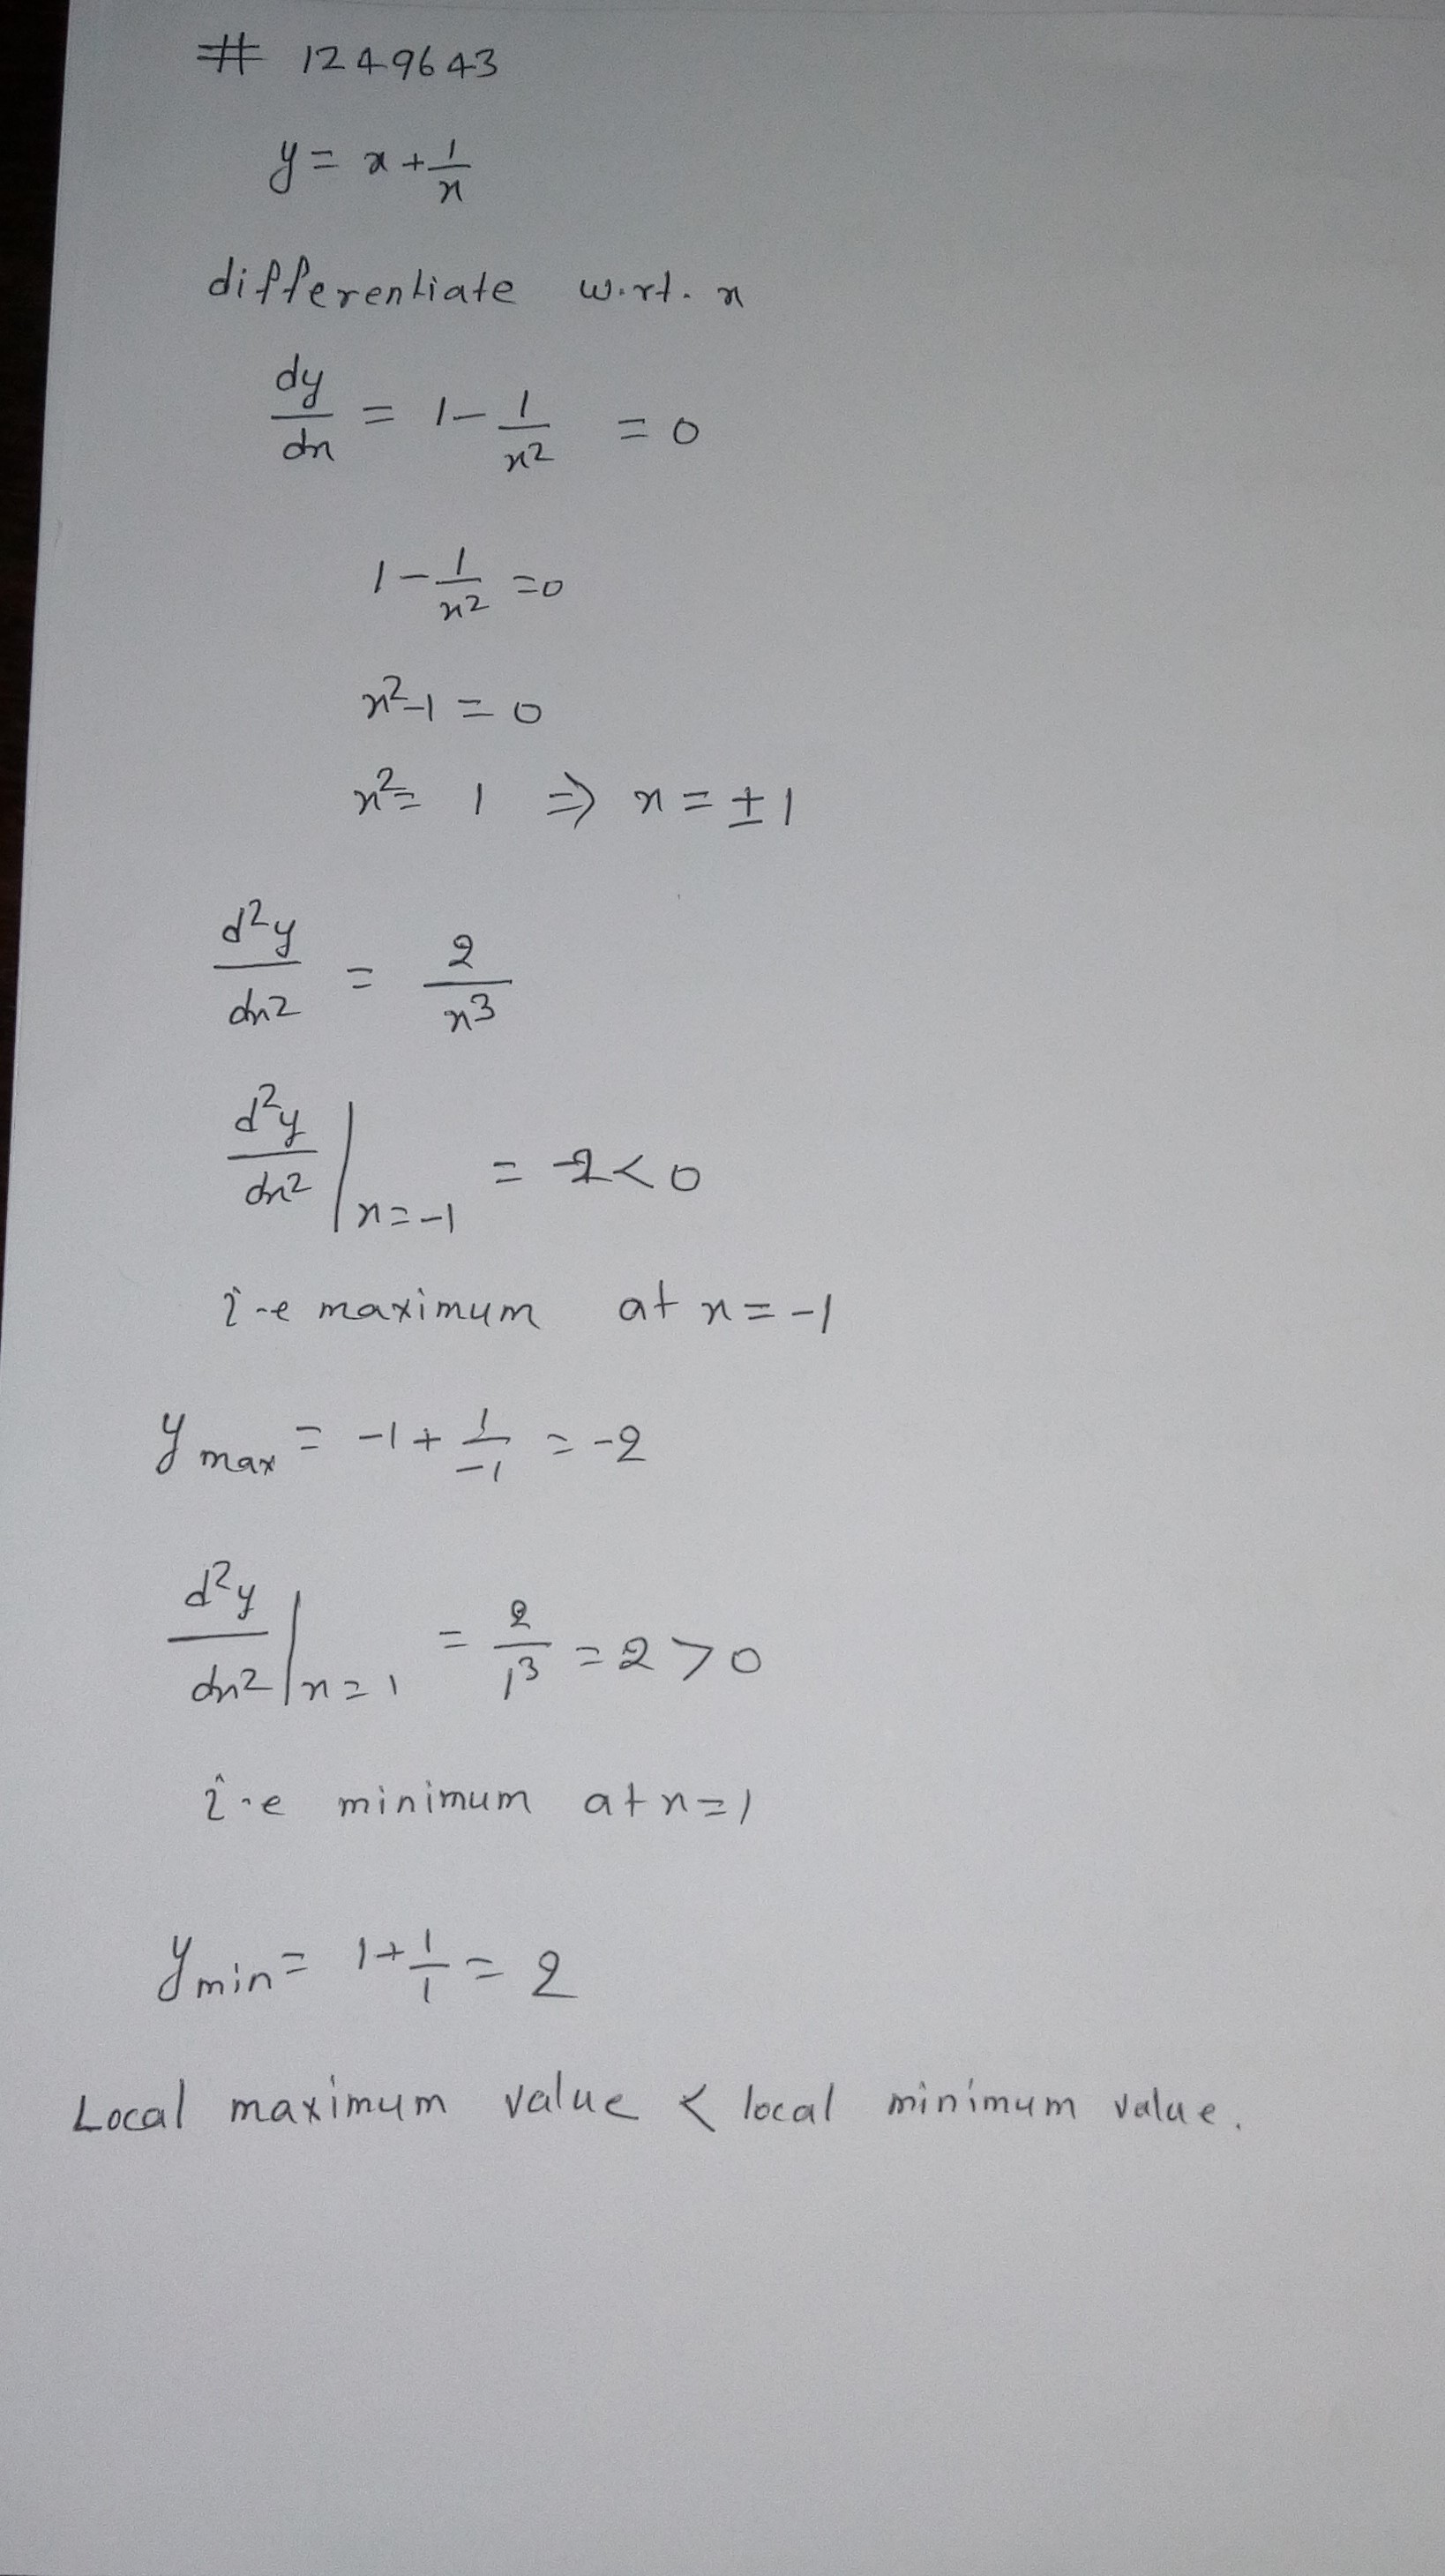 # 1249643
y = x + 1/x
differentiate w.r.t. x
dy/dx = 1 - 1/x² = 0
1 - 1/x² = 0
x² - 1 = 0
x² = 1 ⇒ x = ± 1
d²y/dx² = 2/x³
d²y/dx² |x=-1 = -2 < 0
i-e maximum at x = -1
y max = -1 + 1/-1 = -2
d²y/dx² |x=1 = 2/1³ = 2 > 0
i-e minimum at x = 1
y min = 1 + 1/1 = 2
Local maximum value < local minimum value.